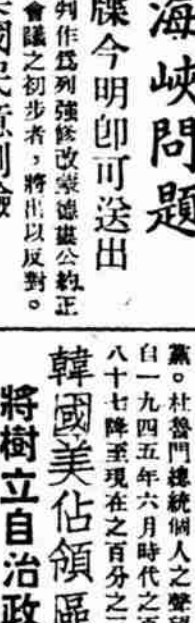 海峽問題
牒今明卽可送出
判作爲列強修改蒙德婁公約正
會議之初步者，將出以反對。
黨。杜魯門總統個人之聲
自一九四五年六月時代之百
八十七降至現在之百分之
韓國美佔領區
將樹立自治政